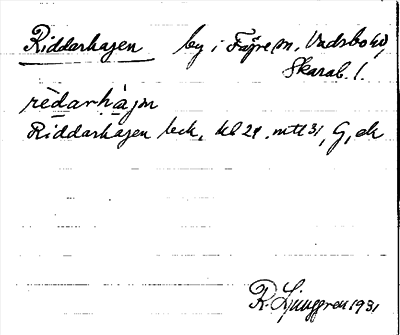 Ridderhagen by i Färe sn, Vadsbo hd,
Skarab. l.
rèdarhàgın
Ridderhagen beck, kl 21. mtl 31, G, ek
R. Ljunggren 1931